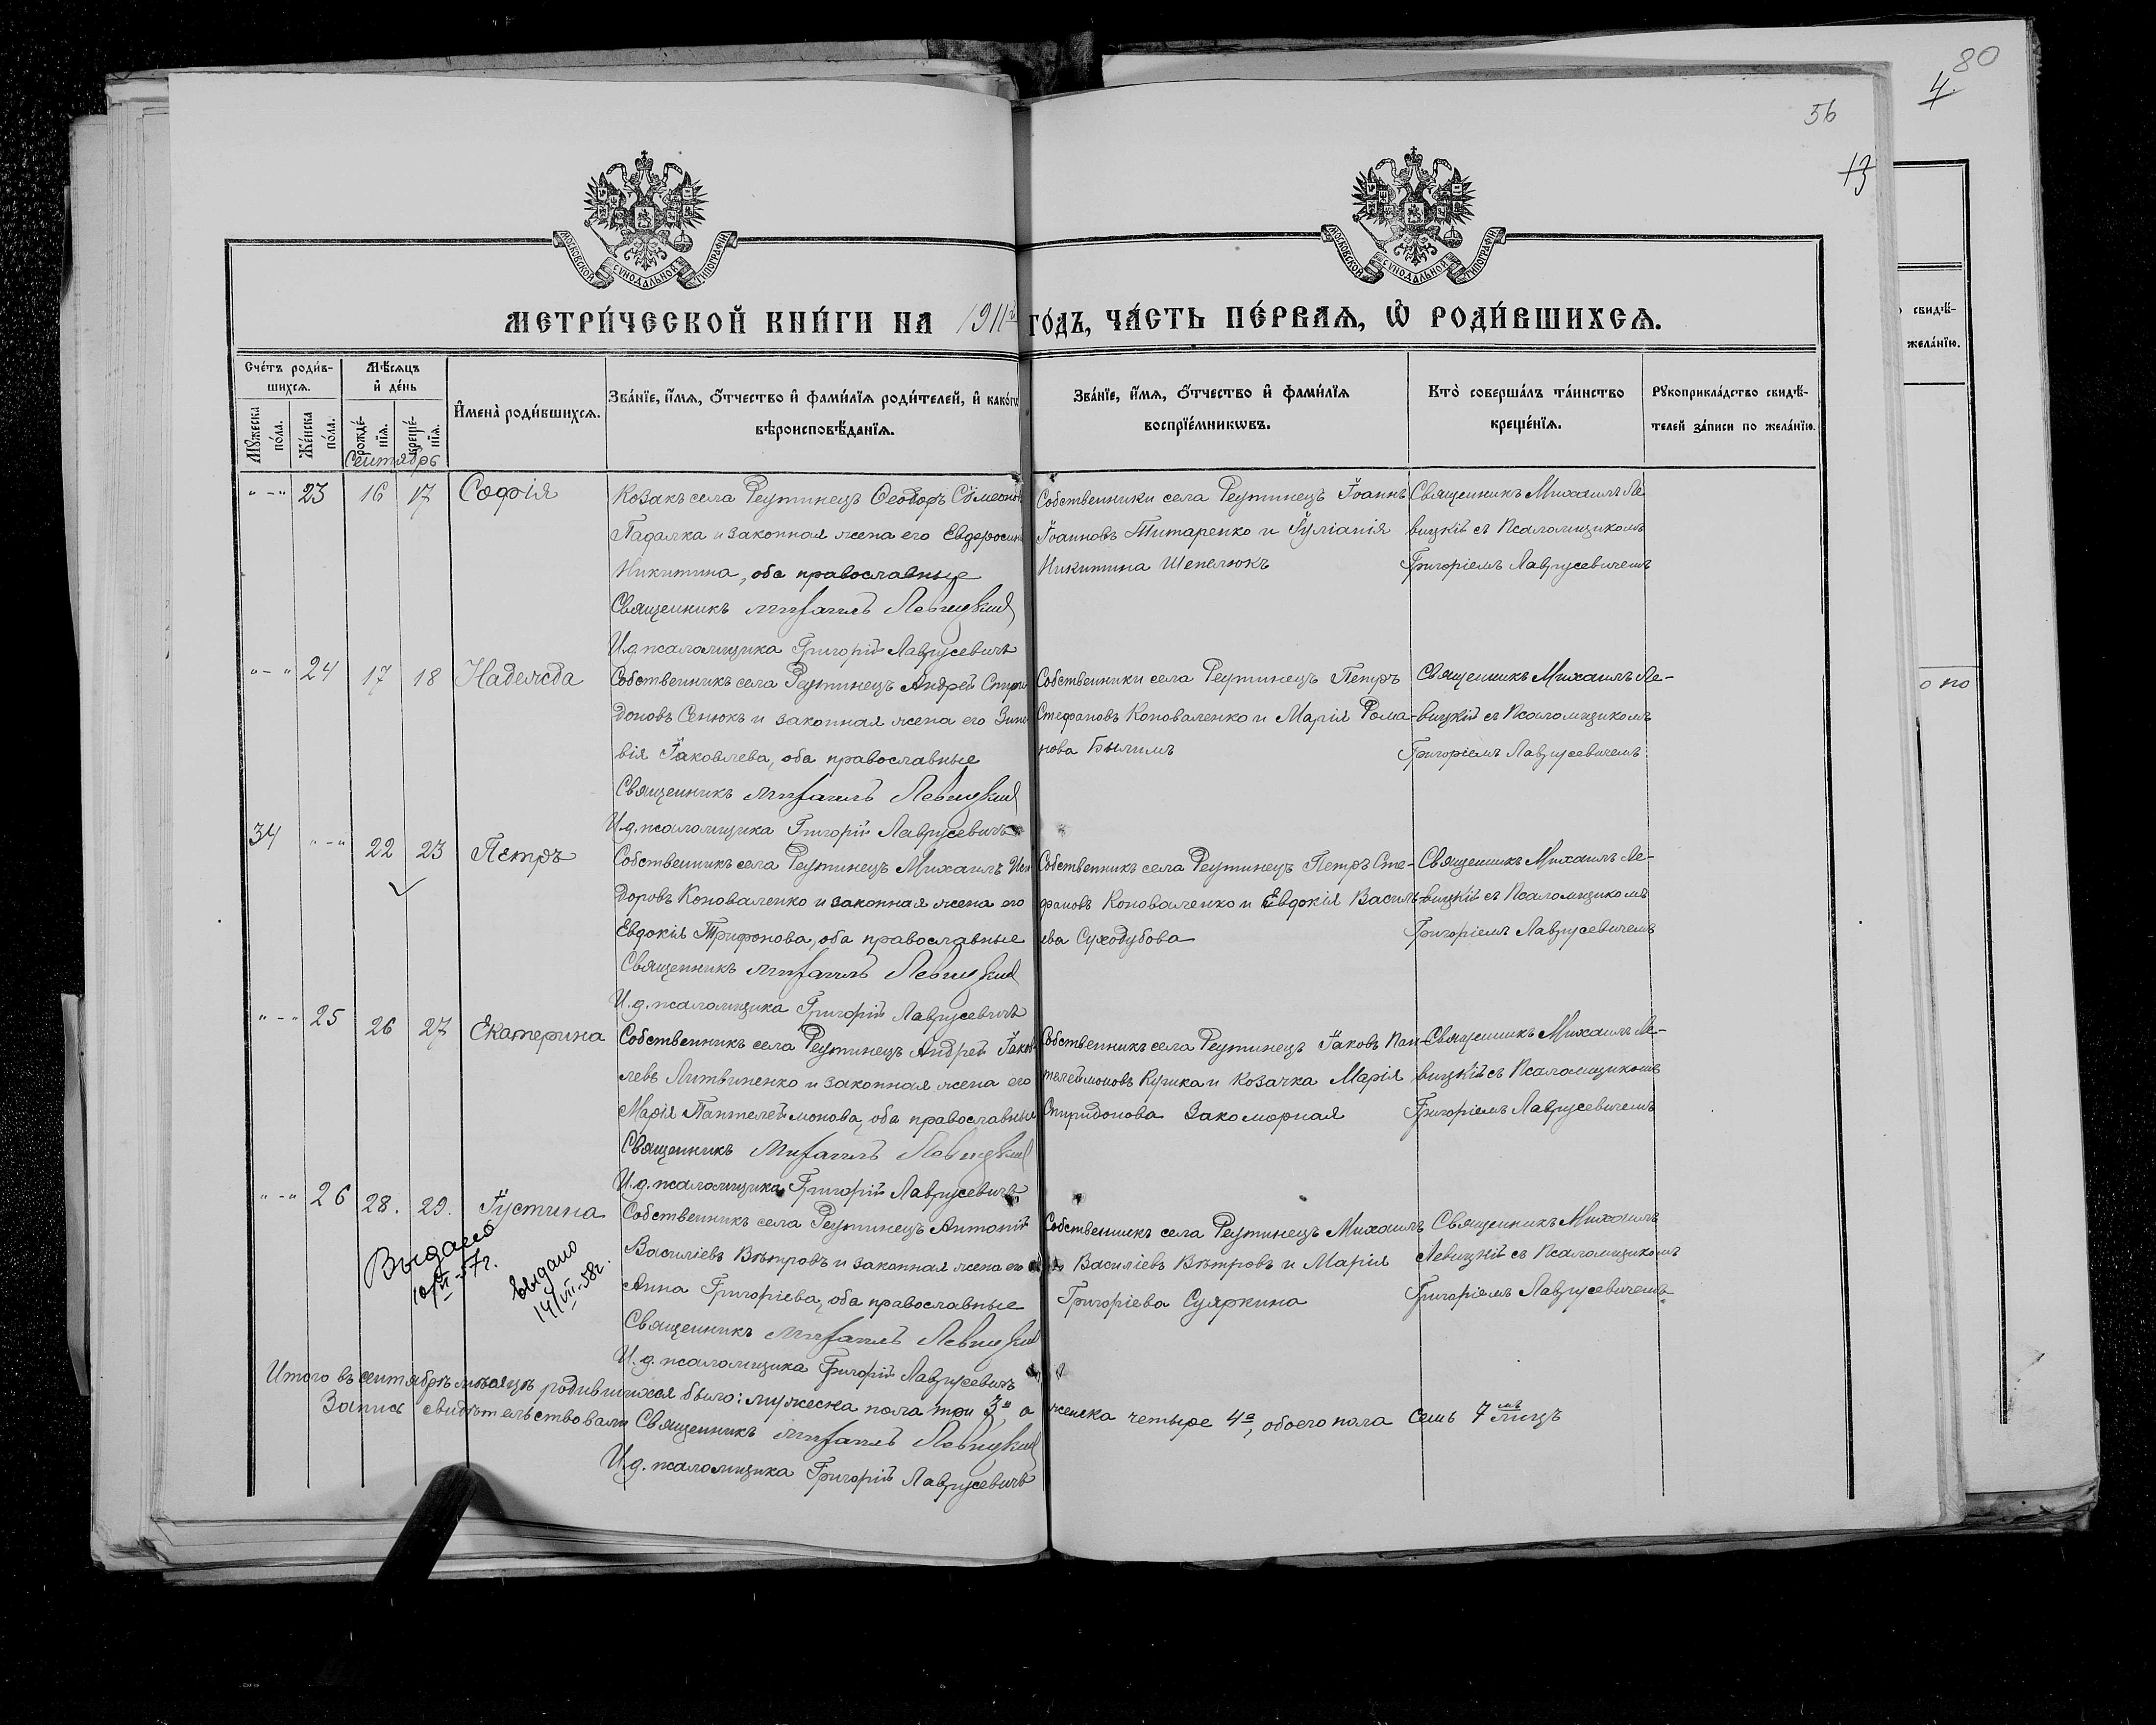 80
4.
56
13
МОСКОВСКОЙ СУНОДАЛЬНОЙ ТИПОГРАФІИ
МОСКОВСКОЙ СУНОДАЛЬНОЙ ТИПОГРАФІИ
МЕТРИ́ЧЕСКОЙ КНИ́ГИ НА 1911й ГО́ДЪ, ЧА́СТЬ ПЕ́РВАѦ, Ѡ҆ РОДИ́ВШИХСѦ.
Сче́тъ роди́в-
шихсѧ.
Мѣ́сѧцъ
и҆ де́нь
И҆мена̀ роди́вшихсѧ.
Зва́нїе, и҆́мѧ, ѻ҆́тчество и҆ фами́лїѧ роди́телей, и҆ како́гѡ
вѣроисповѣ́данїѧ.
Зва́нїе, и҆́мѧ, ѻ҆́тчество и҆ фами́лїѧ
воспрїе́мникѡвъ.
Кто̀ соверша́лъ та́инство
креще́нїѧ.
Рꙋкоприкла́дство свидѣ́-
телей за́писи по жела́нїю.
Мꙋжеска по́ла.
Же́нска по́ла.
рожде́-нїѧ.
креще́-нїѧ.
свидѣ́-
жела́нїю.
о по
Сентябрь
"-" 23 16 17 Софія
Козакъ села Реутинецъ Ѳеодоръ Сѵмеонов
Падалка и законная жена его Евдросинія
Никитина, оба православные
Священникъ Михаилъ Левицкій
И.д. псаломщика Григорій Лаврусевичъ
Собственники села Реутинецъ Іоаннъ
Іоанновъ Титаренко и Іуліанія
Никитина Шепелюкъ
Священникъ Михаилъ Ле
вицкій съ Псаломщикомъ
Григоріемъ Лаврусевичемъ
"-" 24 17 18 Надежда
Собственникъ села Реутинецъ Андрей Спири
доновъ Сенюкъ и законная жена его Зино
вія Іаковлева, оба православные
Священникъ Михаилъ Левицкій
И.д. псаломщика Григорій Лаврусевичъ
Собственники села Реутинецъ Петръ
Стефановъ Коноваленко и Марія Рома-
нова Былимъ
Священникъ Михаилъ Ле-
вицкій съ Псаломщикомъ
Григоріемъ Лаврусевичемъ
34 "-" 22 23 Петръ
Собственникъ села Реутинецъ Михаилъ Иси
доровъ Коноваленко и законная жена его
Евдокія Трифонова, оба православные
Священникъ Михаилъ Левицкій
И.д. псаломщика Григорій Лаврусевичъ
Собственникъ села Реутинецъ Петръ Сте-
фановъ Коноваленко и Евдокія Василь-
ева Суходубова
Священникъ Михаилъ Ле-
вицкій съ Псаломщикомъ
Григоріемъ Лаврусевичемъ
"-" 25 26 27 Екатерина
Собственникъ села Реутинецъ Андрей Іаков
левъ Литвиненко и законная жена его
Марія Пантелеймонова, оба православные
Священникъ Михаилъ Левицкій
И.д. псаломщика Григорій Лаврусевичъ
Собственникъ села Реутинецъ Іаковъ Пан-
телеймоновъ Кушка и Козачка Марія
Спиридонова Закоморная
Священникъ Михаилъ Ле-
вицкій съ Псаломщикомъ
Григоріемъ Лаврусевичемъ
"-" 26 28. 29. Іустина
Собственникъ села Реутинецъ Антоній
Василіевъ Вѣтровъ и законная жена его
Анна Григоріева, оба православные
Священникъ Михаилъ Левицкій
И.д. псаломщика Григорій Лаврусевичъ
Собственникъ села Реутинецъ Михаилъ
Василіевъ Вѣтровъ и Марія
Григоріева Суяркина
Священникъ Михаилъ
Левицкій съ Псаломщикомъ
Григоріемъ Лаврусевичемъ
Выдано
10/VI-57г.
выдано
14/VII-58г.
Итого въ сентябрѣ мѣсяцѣ родившихся было: мужеска пола три 3и, а женска четыре 4е, обоего пола семь 7мъ лицъ
Запись свидѣтельствовали Священникъ Михаилъ Левицкій
И.д. псаломщика Григорій Лаврусевичъ